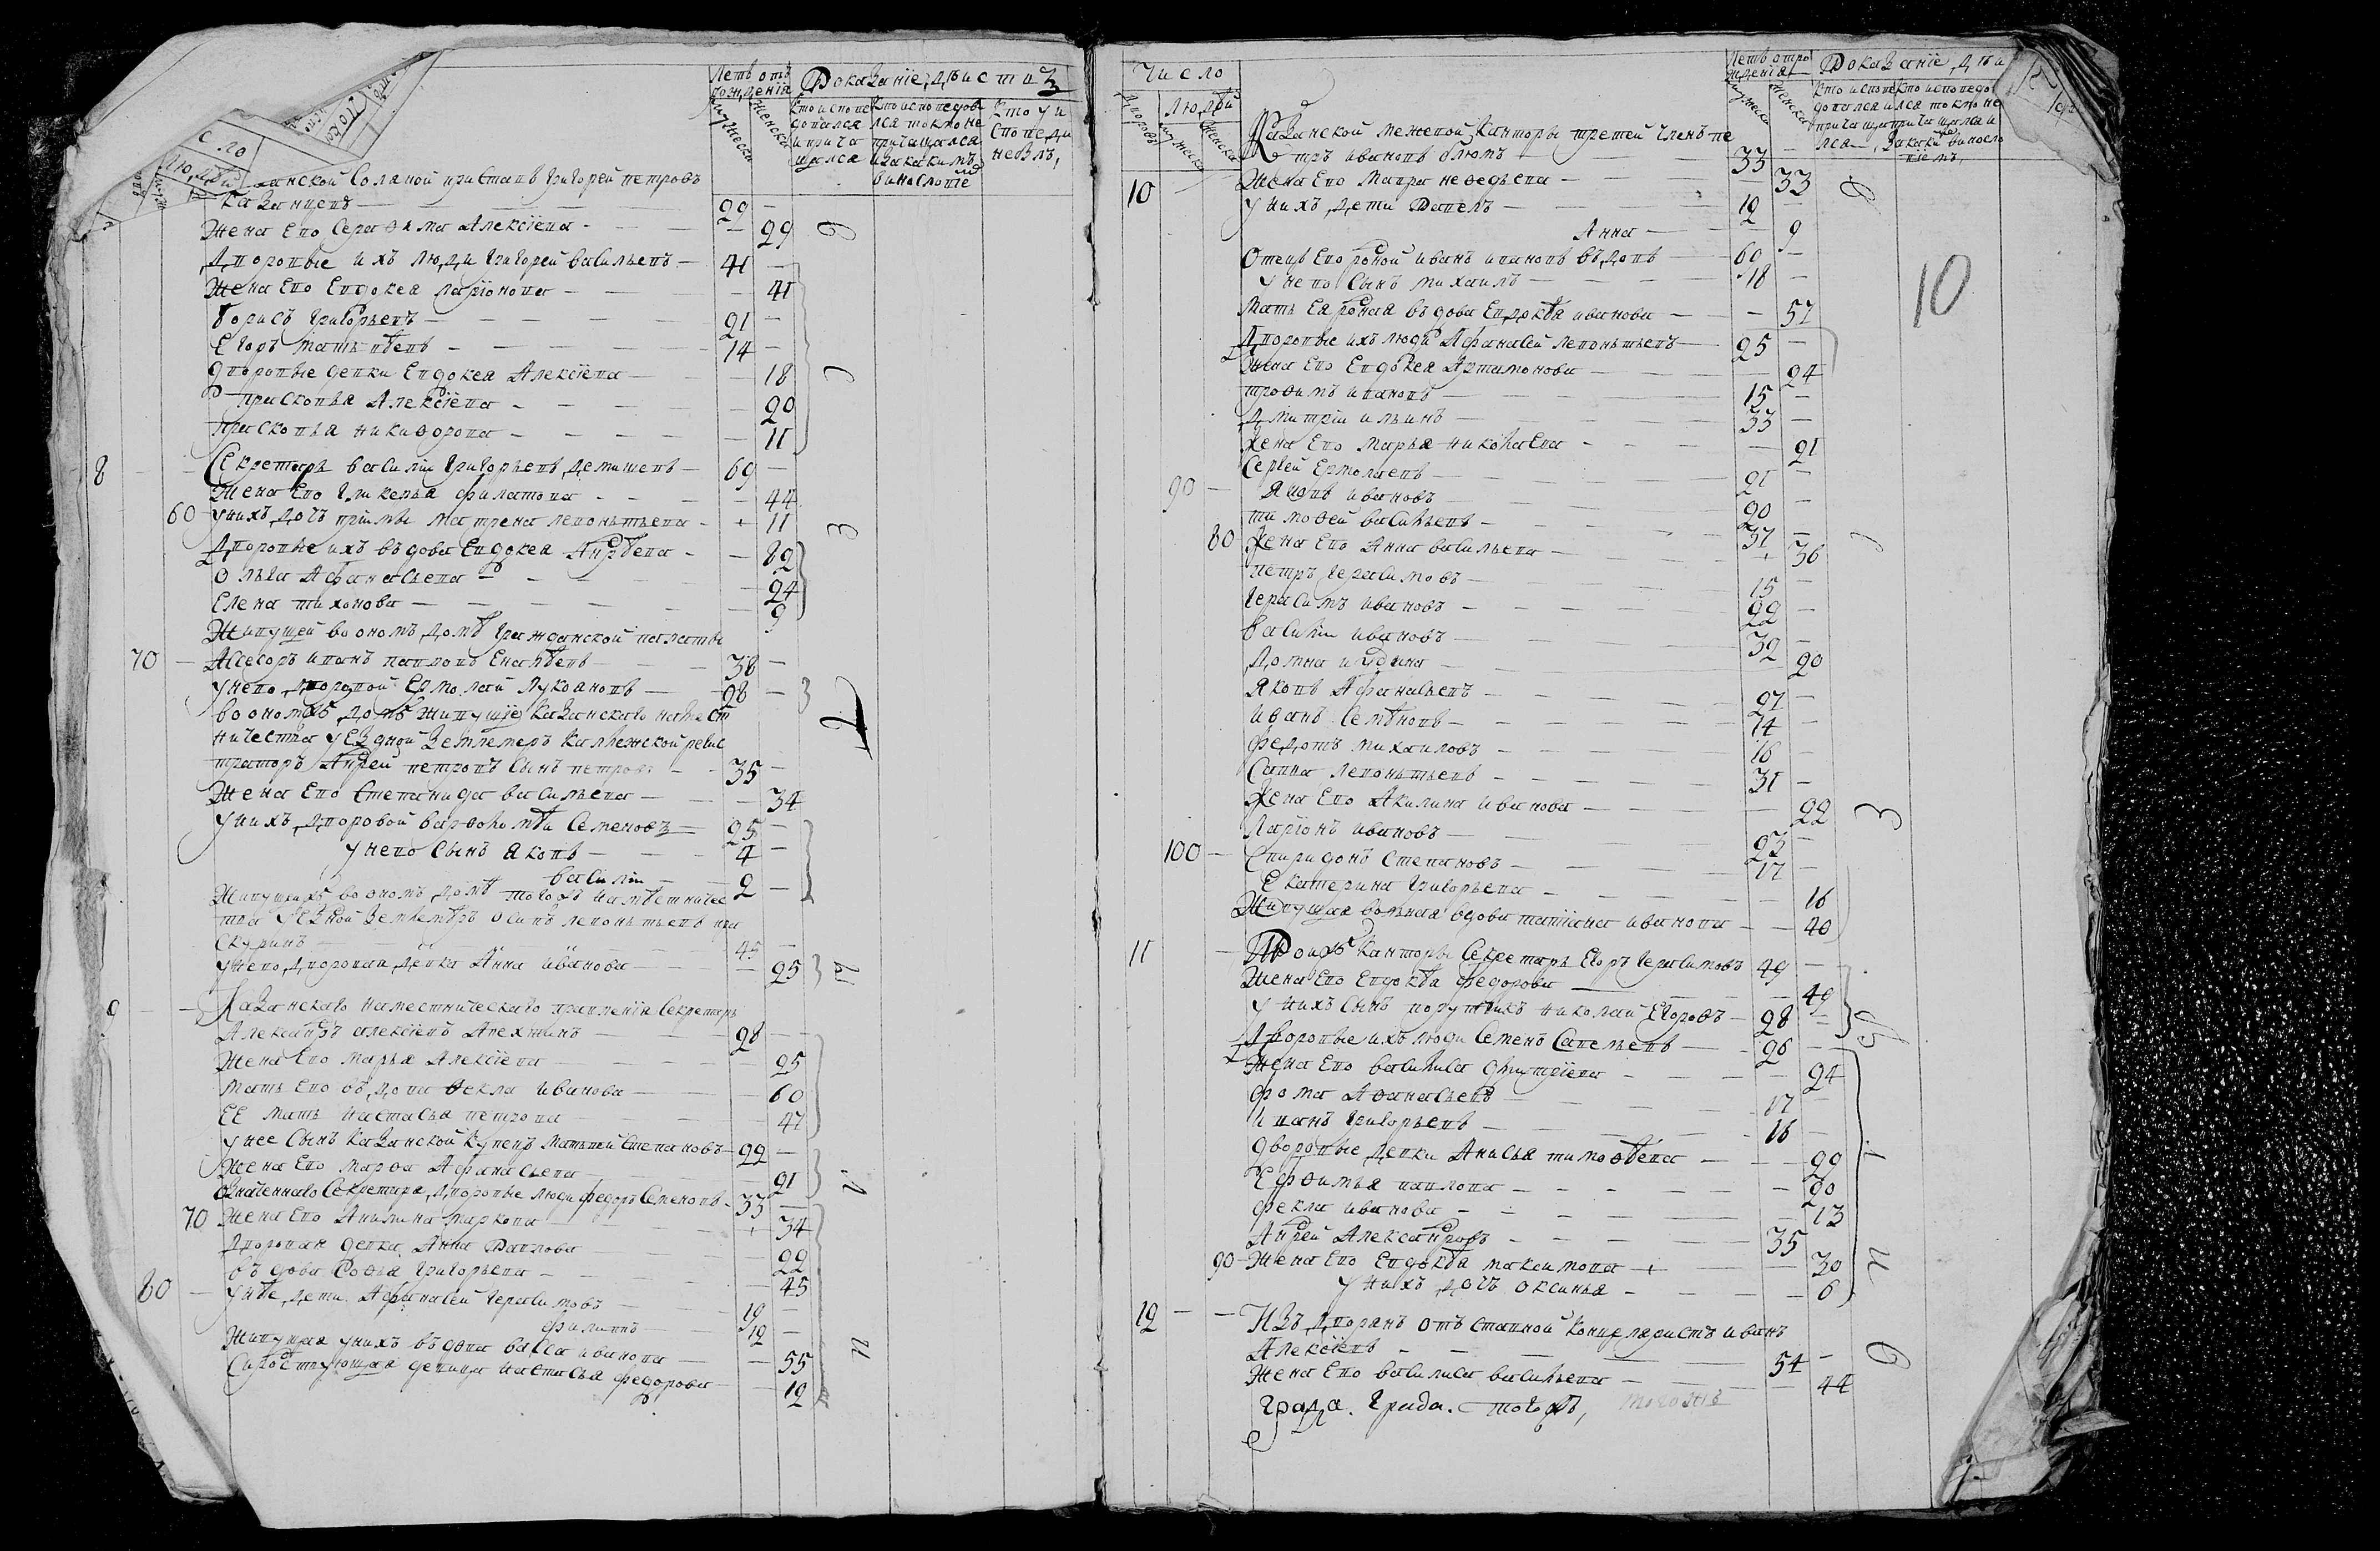 Летъ отъ рожденiя
Показанiе, действо
мужеска
женска
кто исповедовался и причащался
кто исповедовался токмо не причащался и за какимъ винословиемъ
кто у исповеди небылъ,
Соляной приставъ Григорей петровъ
Казанцевъ — 29 —
Жена Ево Серафима Алексiева — 29
Дворовые ихъ люди Григорей васильевъ — 41 —
Жена Ево Евдокея ларiонова — 41
Борисъ Григорьевъ — 21 —
Егоръ матвѣевъ — 14 —
Дворовые девки Евдокея Алексiева — 18
прасковья Алексiева — 20
прасковья никифорова — 11
8 Секретарь василiи Григорьевъ демишевъ — 69 —
Жена Ево Гликерья филатова — 44
60 Унихъ дочь матрена леонтьева — 11
Дворовые ихъ вдова Евдокея Андрѣева — 82
Ольга Афанасьева — 24
Елена тихонова — 9
Живущей во ономъ домѣ Гражданской палаты
70 Асесоръ иванъ павловъ — 38 —
Унево дворовой Ермолай Лукояновъ — 28 —
во ономъ домѣ живущiе Казанскаго намест
ничества уѣзной Землемеръ Коллежской регис
траторъ Андрей петровъ сынъ петровъ — 35 —
Жена Ево Степанида васильева — 34
Унихъ дворовой варфоломѣи Семеновъ — 25 —
Унево сынъ яковъ — 4 —
василiи — 2 —
Живущихъ во ономъ домѣ тогожъ намѣстничес
тва уѣзной Землемѣръ осипъ леонтьевъ при
скуринъ — 45 —
Унево дворовая девка Анна iванова — 25
9 Казанскаго наместническаго правленiя Секретарь
Александръ алексiевъ Алехтинъ — 28 —
Жена Ево марья Алексiева — 25
мать Ево вдова Фекла иванова — 60
ЕЕ мать настасья петрова — 47
Унее сынъ Казанской Купецъ матвей степановъ — 22 —
Жена Ево марфа Афанасьева — 21
означеннаго Секретаря дворовые люди федоръ Семеновъ — 33 —
70 Жена Ево Акилина маркова — 34
Дворовая девка Анна Павлова — 22
вдова Софья Григорьева — 45
80 Унѣе дети Афанасей Герасимовъ — 19 —
филипъ — 12 —
Живущая унихъ вдова васса иванова — 55
Сиротствующая девица настасья федорова — 12
Число
дворовъ
людей
мужеска
женска
Летъ отрождения
мужеска
женска
Показанiе, дѣи
Казанской межевой Канторы третей членъ пе
тръ ивановъ блюмъ — 33 —
10 Жена Ево мавра неФедьева — 33
Унихъ дети Павелъ — 12
Анна — 9
Отецъ Ево родной иванъ ивановъ вдовъ — 60 —
Унево сынъ михаилъ — 18 —
мать Ея родная вдова Евдокѣя иванова — 57
Дворовые ихъ люди Афанасей леонтьевъ — 25 —
Жена Ево Евдокея Артамонова — 24
трофимъ ивановъ — 15 —
Дмитрiи ильинъ — 33 —
Жена Ево марья николаева — 21
Сергей Ермолаевъ — 21 —
90 Яковъ ивановъ — 20 —
тимофей васильевъ — 37 —
80 Жена Ево Анна васильева — 36
петръ Герасимовъ — 15 —
Герасимъ ивановъ — 22 —
василiи ивановъ — 32 —
Домна — 20
Яковъ Афанасьевъ — 27 —
иванъ Семѣновъ — 14 —
федотъ михаиловъ — 18 —
Савва леонтьевъ — 31 —
Жена Ево Акилина иванова — 22
Ларiонъ ивановъ — 23 —
100 Спиридонъ Степановъ — 17 —
Екатерина Григорьева — 16
Живущая вольная вдова татiана иванова — 40
11 Тойжъ канторы Секретарь Егоръ Герасимовъ 49 —
Жена Ево Евдокѣя федорова — 49
Унихъ сынъ порутчикъ николай Егоровъ — 28 —
Дворовые ихъ люди Семенъ Савельевъ — 26 —
Жена Ево василиса Дмитрiева — 24
фома Афанасьевъ — 17 —
иванъ Григорьевъ — 16 —
дворовые девки Анисья тимофѣева — 29
Ефимья павлова — 20
фекла иванова — 13
Андрей Александровъ — 35
90 Жена Ево Евдокѣя максимова — 30
Унихъ дочь оксинья — 6
12 Изъ дворянъ отъ ставной Концеляристъ иванъ
Алексiевъ — 54 —
Жена Ево василиса васильева — 44
10
града. Града. тогожъ, тогожъ